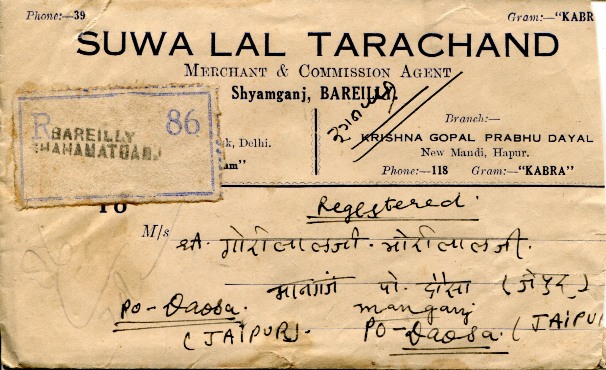 Phone:—39 Gram:—"KABR
SUWA LAL TARACHAND
MERCHANT & COMMISSION AGENT
Shyamganj, BAREILLY.
R BAREILLY 86
SHAHAMATGANJ
k, Delhi.
am"
Branch:—
KRISHNA GOPAL PRABHU DAYAL
New Mandi, Hapur.
Phone:—118 Gram:—"KABRA"
TO
Registered.
M/s श्री. गोरीलालजी. मोरीलालजी.
मानगंज पो. दौसा
PO-Daosa. manganj
(JAIPUR). PO-Daosa. (JAIPU